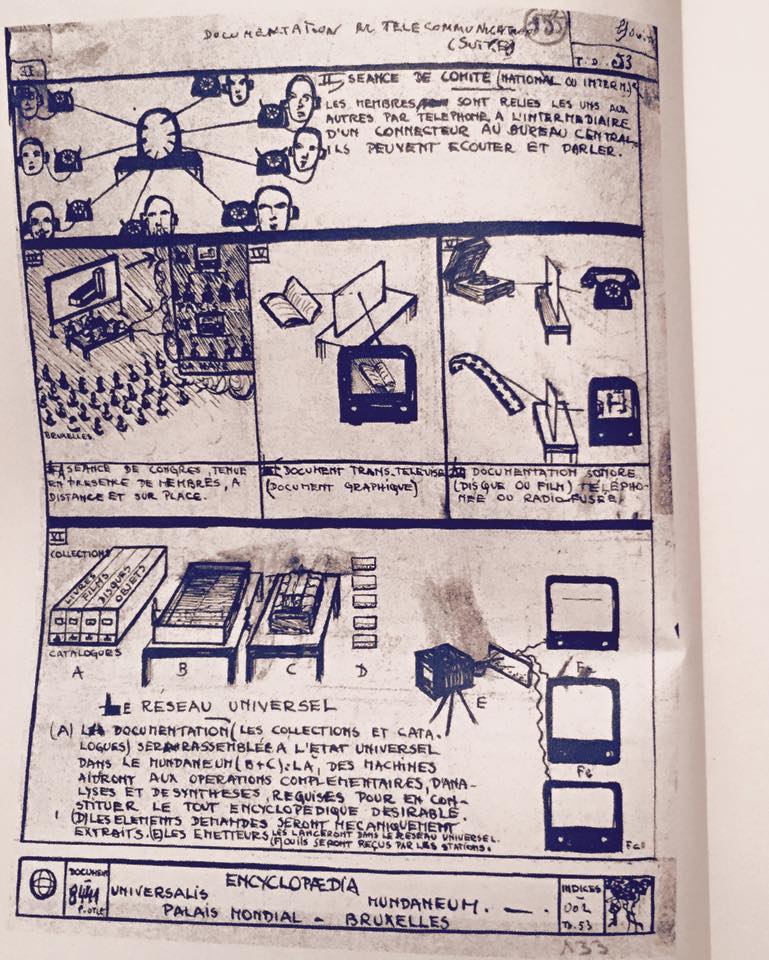 DOCUMENTATION ET TELECOMMUNICATION
(SUITE)
T.D. 53
II SEANCE DE COMITÉ (NATIONAL OU INTERN.)
LES MEMBRES SONT RELIES LES UNS AUX
AUTRES PAR TELEPHONE, A L'INTERMEDIAIRE
D'UN CONNECTEUR AU BUREAU CENTRAL.
ILS PEUVENT ECOUTER ET PARLER.
IV
V
LA HAYE
BRUXELLES
SEANCE DE CONGRES, TENUE
EN PRESENCE DE MEMBRES, A
DISTANCE ET SUR PLACE.
DOCUMENT TRANS. TELEVISE
(DOCUMENT GRAPHIQUE)
DOCUMENTATION SONORE.
(DISQUE OU FILM) TÉLÉPHO-
NEE OU RADIO-FUSÉE.
VI
COLLECTIONS
LIVRES
FILMS
DISQUES
OBJETS
CATALOGUES
A
B
C
D
E
LE RESEAU UNIVERSEL
(A) LA DOCUMENTATION (LES COLLECTIONS ET CATA-
LOGUES) SERA RASSEMBLÉE A L'ÉTAT UNIVERSEL
DANS LE MUNDANEUM (B+C). LA, DES MACHINES
AIDRONT AUX OPERATIONS COMPLEMENTAIRES, D'ANA-
LYSES ET DE SYNTHESES, REQUISES POUR EN CON-
STITUER LE TOUT ENCYCLOPEDIQUE DESIRABLE.
(D) LES ELEMENTS DEMANDES SERONT MECANIQUEMENT
EXTRAITS. (E) LES EMETTEURS LES LANCERONT DANS LE RESEAU UNIVERSEL.
(F) OU ILS SERONT REÇUS PAR LES STATIONS.
DOCUMENT
8441
P. OTLET
ENCYCLOPÆDIA
UNIVERSALIS MUNDANEUM.
PALAIS MONDIAL - BRUXELLES
INDICES
002
TD. 53
133